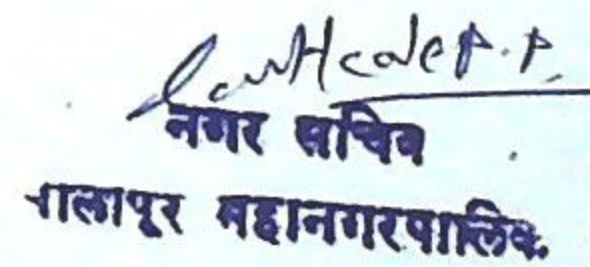 P.P.
नगर सचिव
ालापूर महानगरपालिक